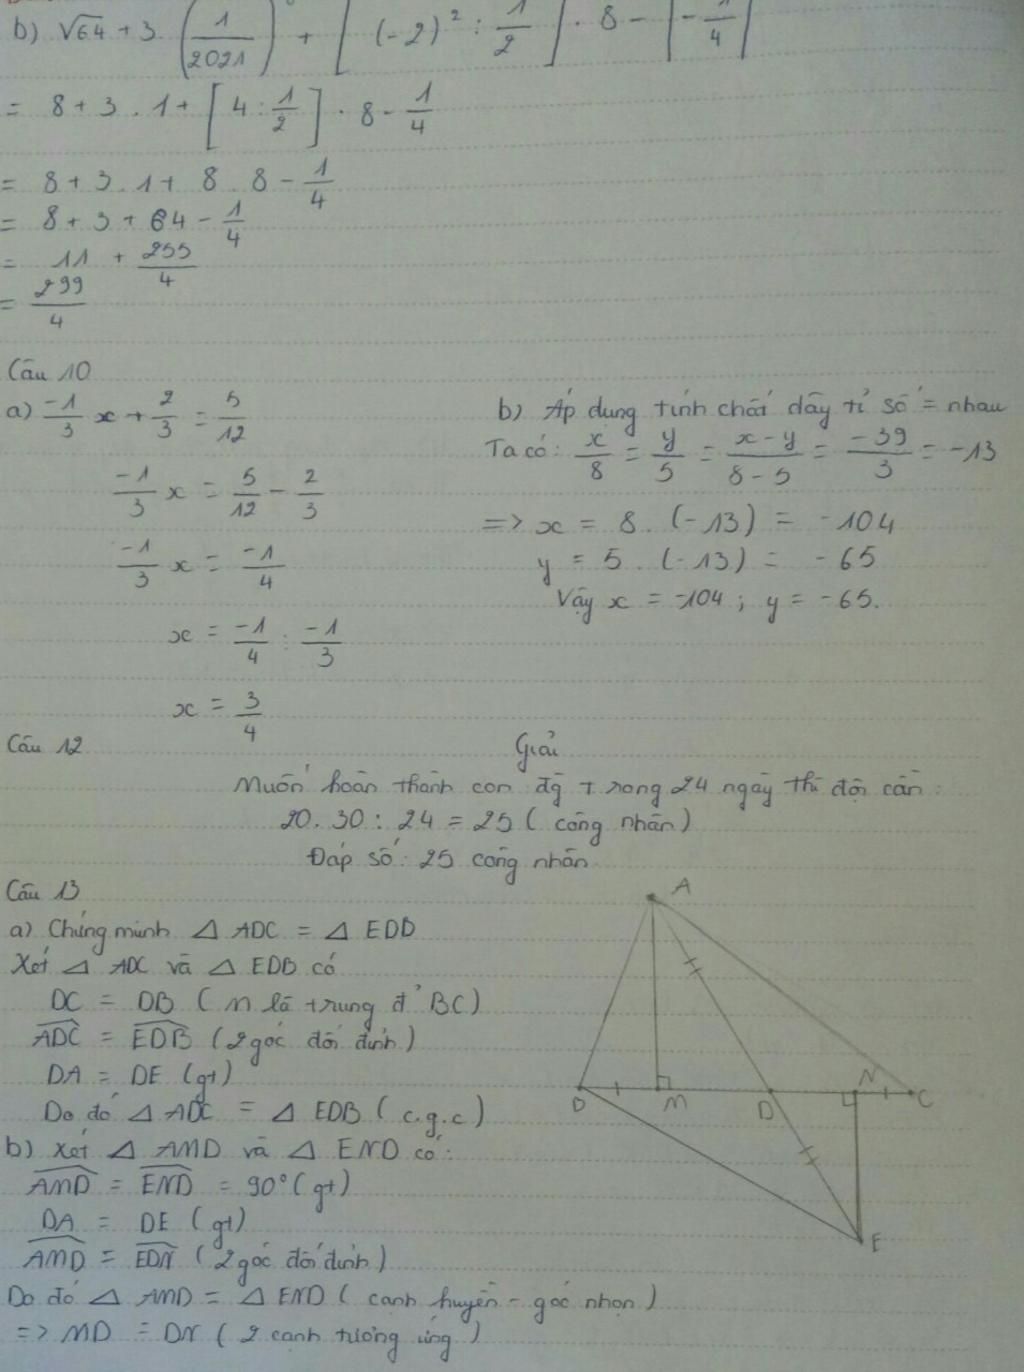 b) √64 + 3. (1/2021)° + [(-2)² : 1/2] . 8 - |-1/4|
= 8 + 3 . 1 + [4 : 1/2] . 8 - 1/4
= 8 + 3 . 1 + 8 . 8 - 1/4
= 8 + 3 + 64 - 1/4
= 11 + 255/4
= 299/4
Câu 10
a) -1/3 x + 2/3 = 5/12
-1/3 x = 5/12 - 2/3
-1/3 x = -1/4
x = -1/4 : -1/3
x = 3/4
b) Áp dụng tính chất dãy tỉ số = nhau
Ta có: x/8 = y/5 = x-y/8-5 = -39/3 = -13
=> x = 8 . (-13) = -104
y = 5 . (-13) = -65
Vậy x = -104 ; y = -65.
Câu 12
Giải
Muốn hoàn thành con đg trong 24 ngày thì đội cần :
20. 30 : 24 = 25 ( công nhân )
Đáp số : 25 công nhân
Câu 13
a) Chứng minh △ ADC = △ EDB
Xét △ ADC và △ EDB có
DC = DB ( M là trung đ' BC )
ADC = EDB ( 2 góc đối đỉnh )
DA = DE ( gt )
Do đó △ ADC = △ EDB ( c.g.c )
b) Xét △ AMD và △ END có :
AMD = END = 90° ( gt )
DA = DE ( gt )
AMD = EDN ( 2 góc đối đỉnh )
Do đó △ AMD = △ END ( cạnh huyền - góc nhọn )
=> MD = DN ( 2 cạnh tương ứng )
A
B
M
D
N
C
E